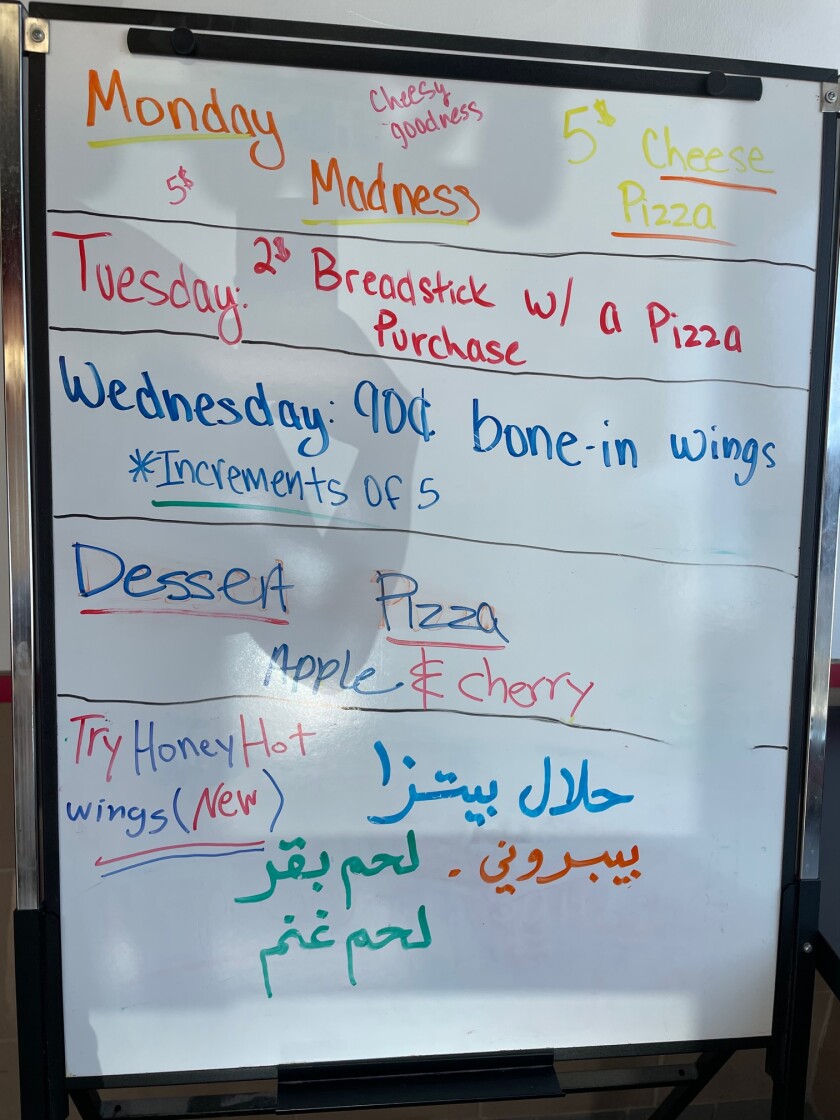 Monday
Cheesy
goodness
5$ Cheese
Pizza
5$
Madness
Tuesday: 2$ Breadstick w/ a Pizza
Purchase
Wednesday: 90¢ bone-in wings
*Increments of 5
Dessert Pizza
Apple & Cherry
Try Honey Hot
wings (New)
حلال بيتزا
بيبروني . لحم بقر
لحم غنم